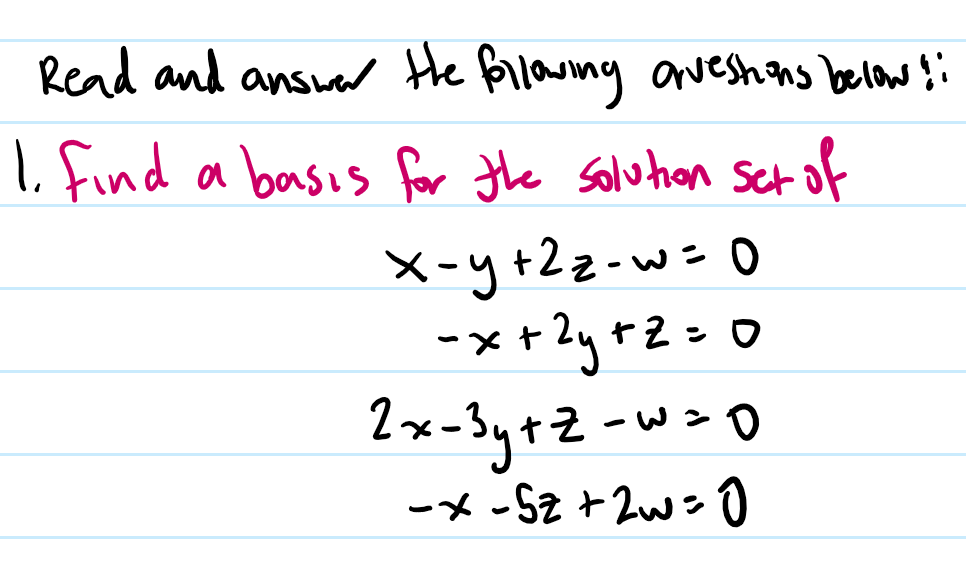 Read and answer the following questions below!:
1. find a basis for the solution set of
x-y+2z-w=0
-x+2y+z=0
2x-3y+z-w=0
-x-5z+2w=0